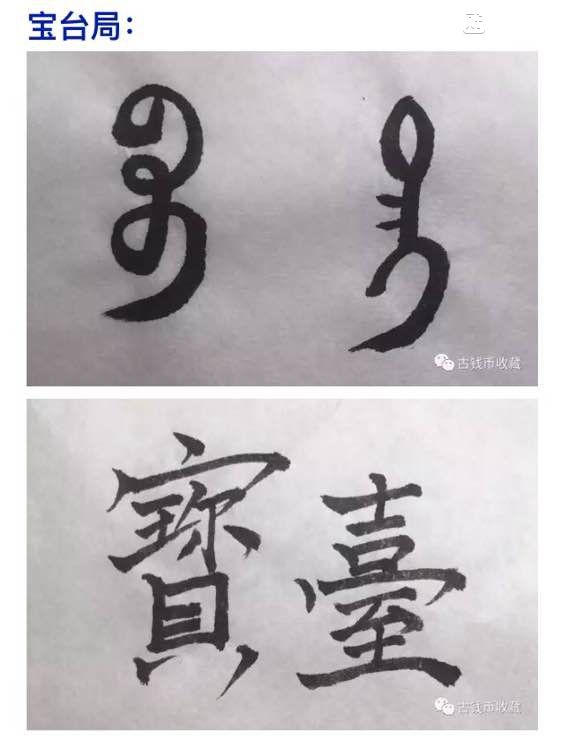 宝台局：
ᠪᠣᠣ ᡨᠠᡳ
古钱币收藏
寳臺
古钱币收藏